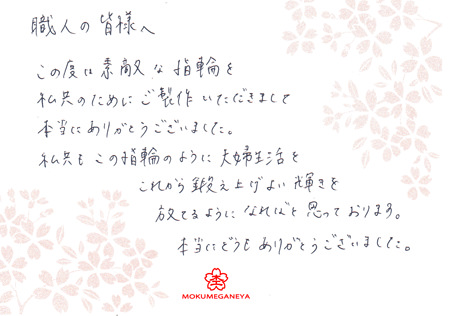 職人の皆様へ
この度は素敵な指輪を
私共のためにご製作いただきまして
本当にありがとうございました。
私共もこの指輪のように夫婦生活を
これから鍛え上げよい輝きを
放てるようになればと思っております。
本当にどうもありがとうございました。
MOKUMEGANEYA